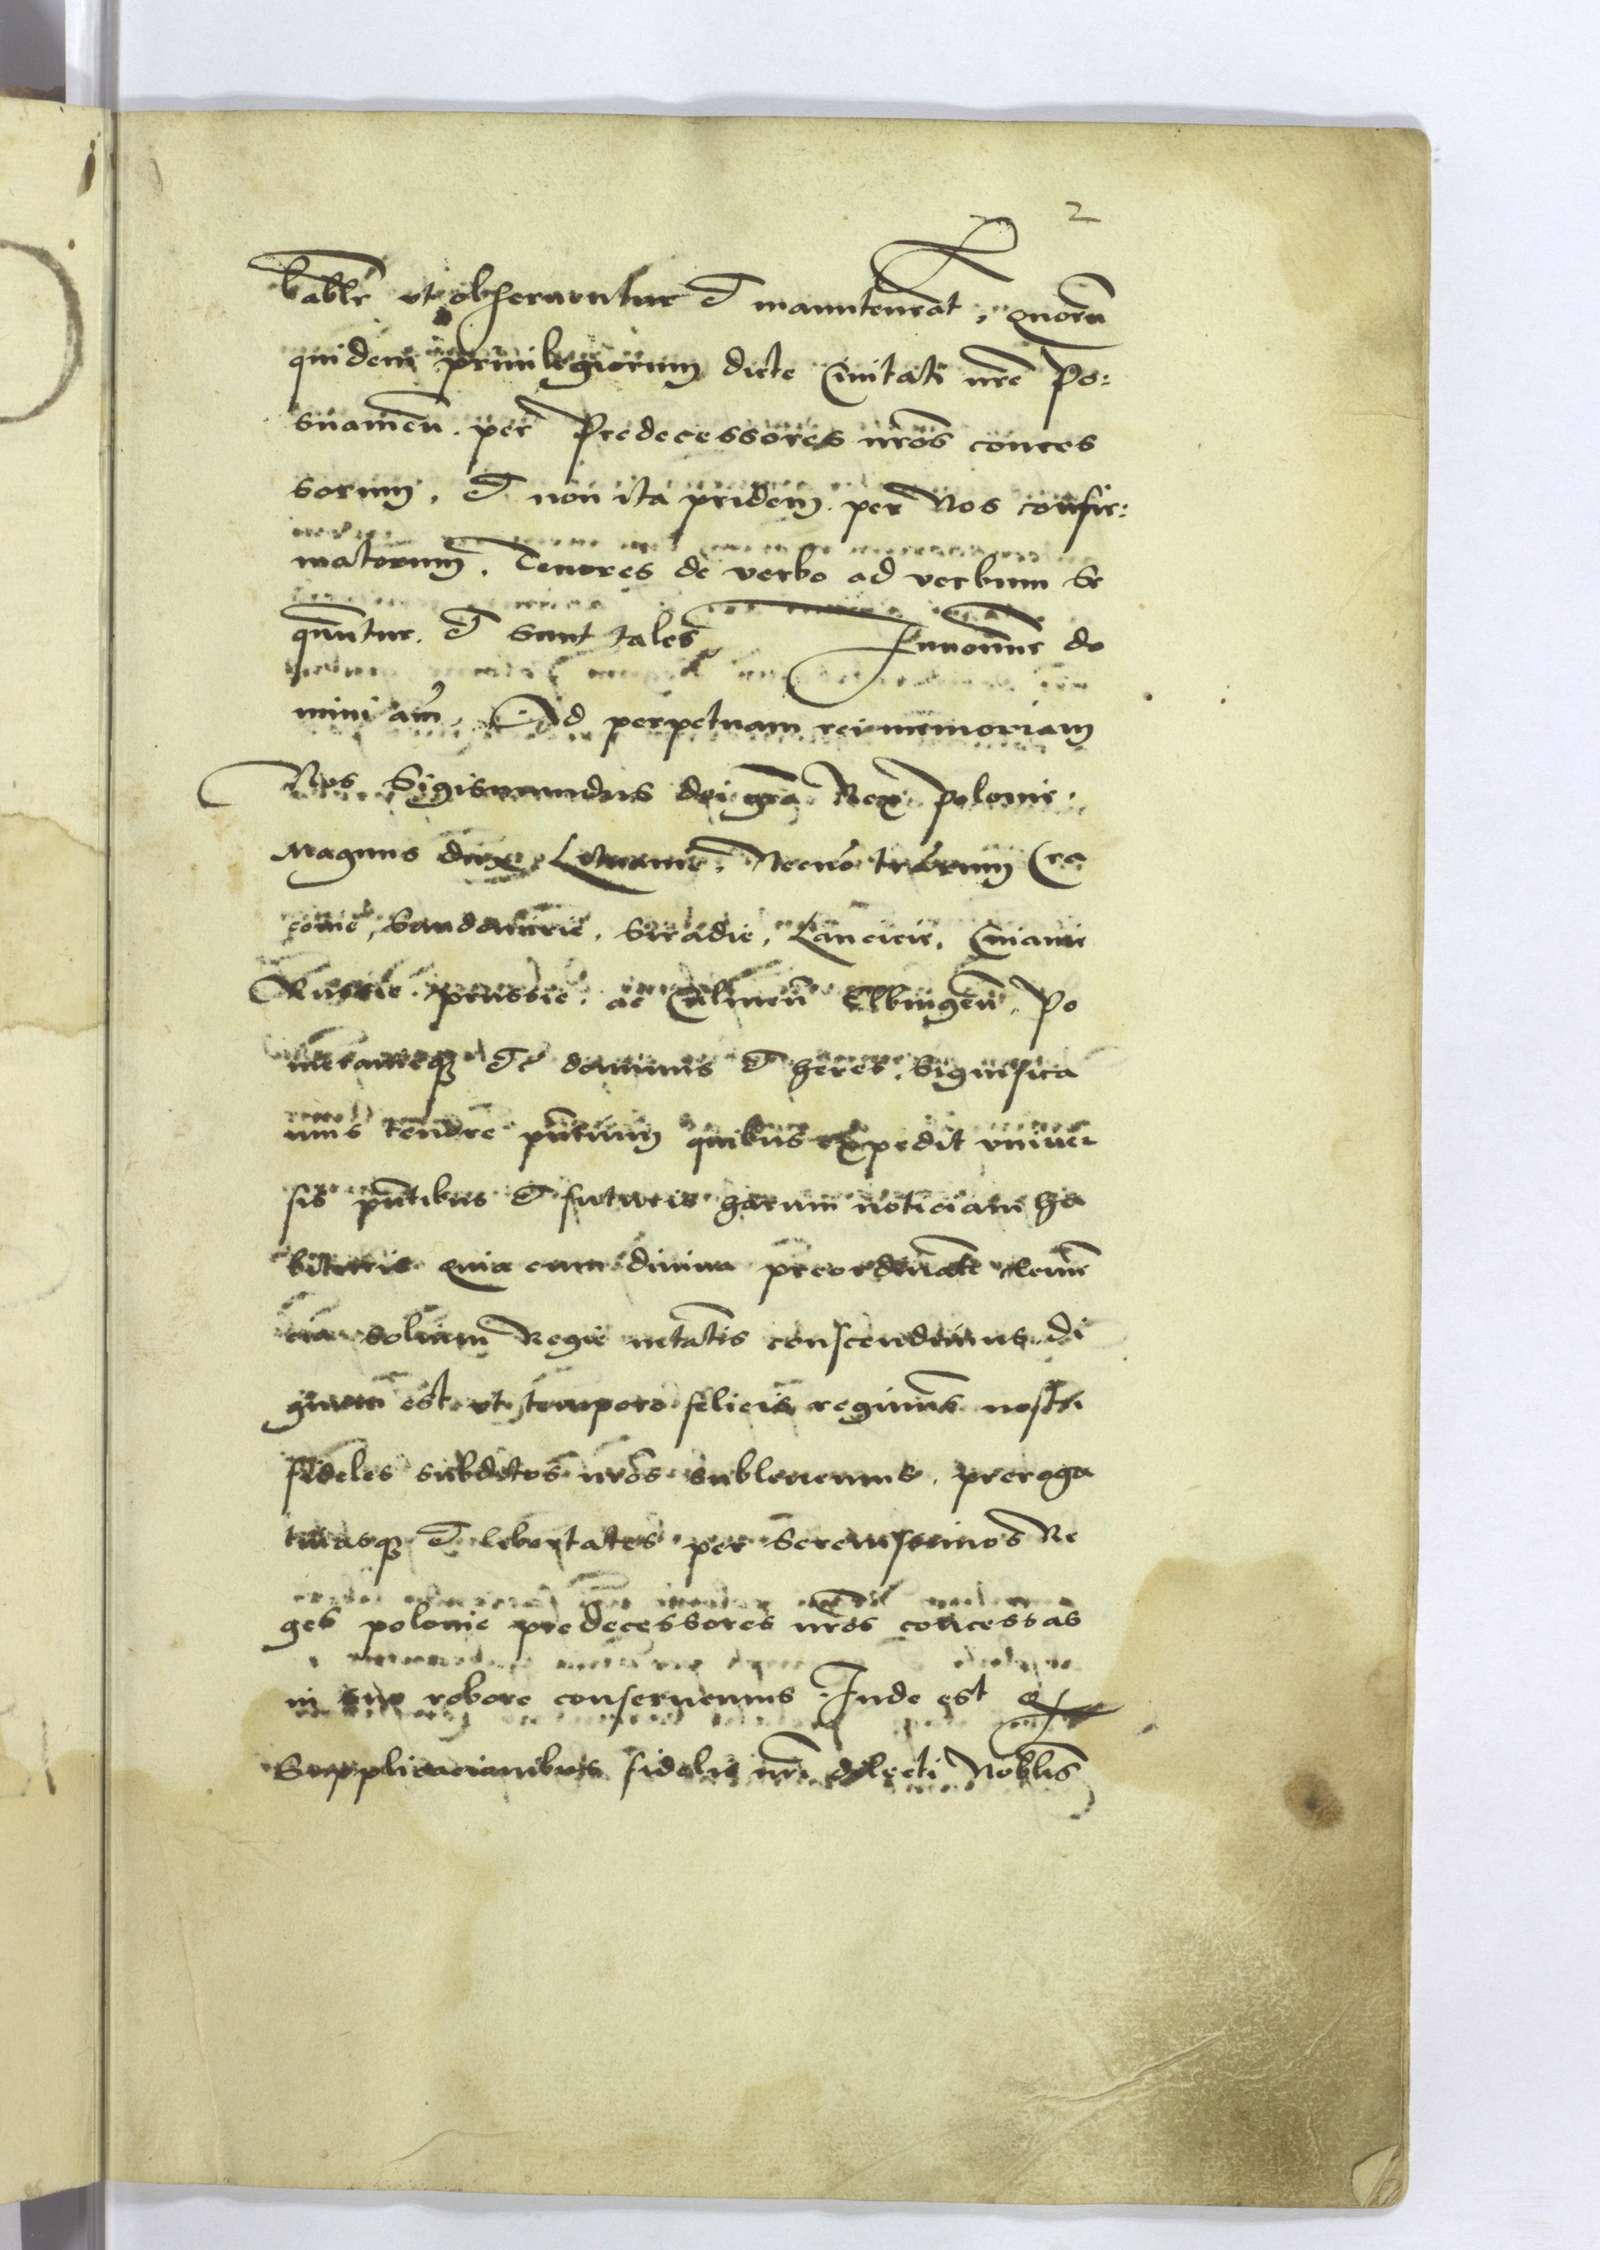 2
bablr ut observentur et manuteneat, quoru
quidem privilegiorum dicte Civitati nre Po:
snamen. per Predecessores nros conces
sorum. et non ita pridem per Nos confir:
matorum. Tenores de verbo ad verbum Se
quntur. et sunt tales In nomine do
mini am. Ad perpetuam rei memoriam
Nos Sigismundus dei gra Rex polonie.
Magnus dux Lituanie. Necno trarum Cra
covie, Sandomirie. Siradie, Lancicie, Cuiavie
Russie prussie. ac Culmen Elbingen. Po
meranieq etc dominus et heres. Significa
mus tenore pntium quibus expedit univer
sis pntibus et futuris harum noticiam ha
bituris Quia cum divina preordinate clemen
cia solium Regie mtatis conscendimus di
gnum est ut tempore felicis regiminis nostri
fideles subditos nros sublevemus. preroga
tivasq et libertates per Serenissimos Re
ges polonie predecessores nros concessas
in suo robore conservemus Inde est q
Supplicacionibus fidelis nri dilecti Noblis